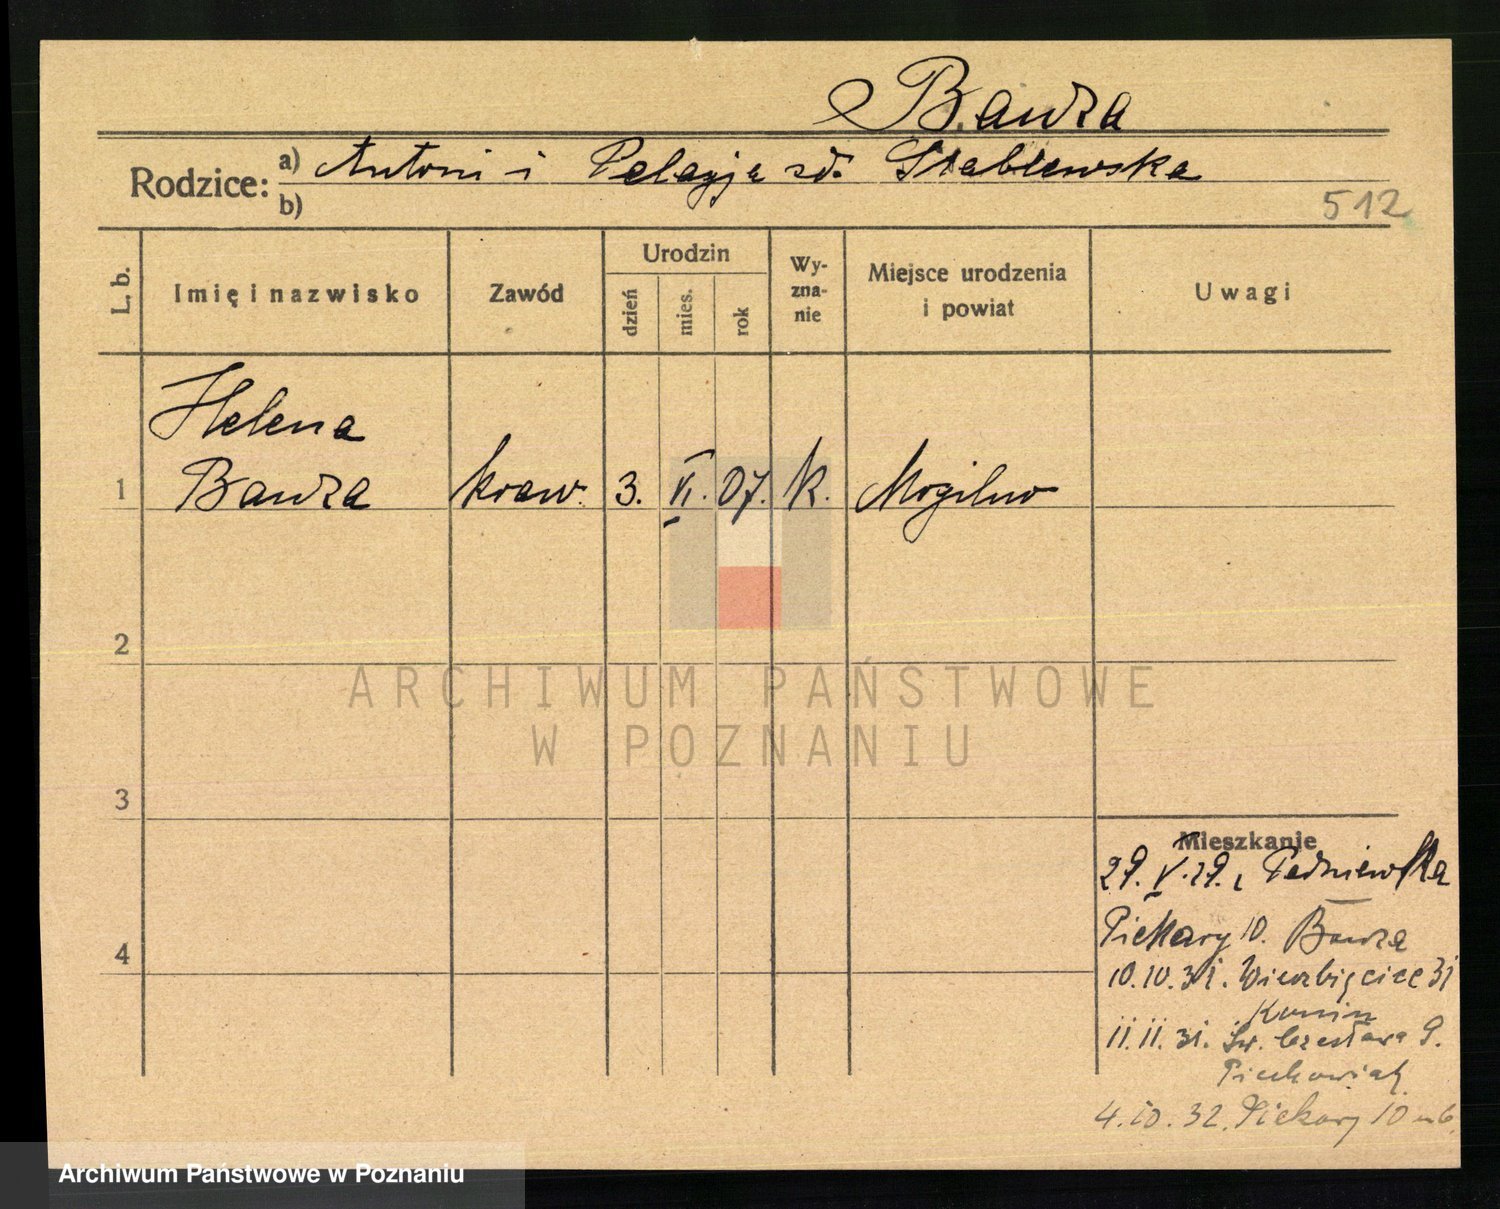 Bawza
Rodzice: a) Antoni i Pelagja zd. Stablewska
b)
512
L. b.
Imię i nazwisko
Zawód
Urodzin
dzień
mies.
rok
Wy-
zna-
nie
Miejsce urodzenia
i powiat
Uwagi
Helena
1 Bawza kraw. 3. VI. 07. k. Mogilno
2
3
4
Mieszkanie
29. V. 29.
Piekary 10. Bawza
10.10.31. Wierzbięcice 31
11.11.31. Św. Czesława 9.
4.10.32. Piekary 10
ARCHIWUM PAŃSTWOWE
W POZNANIU
Archiwum Państwowe w Poznaniu